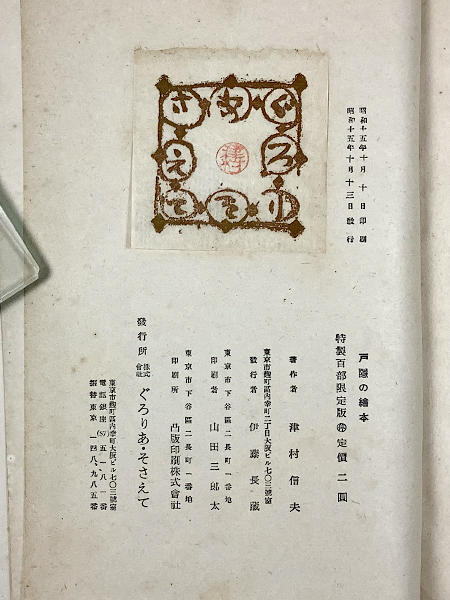 昭和十五年十月十日印刷
昭和十五年十月十三日發行
戸隱の繪本
特製百部限定版 定價二圓
著作者 津村信夫
東京市麴町區內幸町二丁目大阪ビル七〇三號室
發行者 伊藤長藏
東京市下谷區二長町一番地
印刷者 山田三郎太
東京市下谷區二長町一番地
印刷所 凸版印刷株式會社
發行所 株式會社 ぐろりあ・そさえて
東京市麴町區內幸町大阪ビル七〇三號室
電話銀座(57)五一八一番
振替東京一四八、九八五番
ぐろりあそさえて